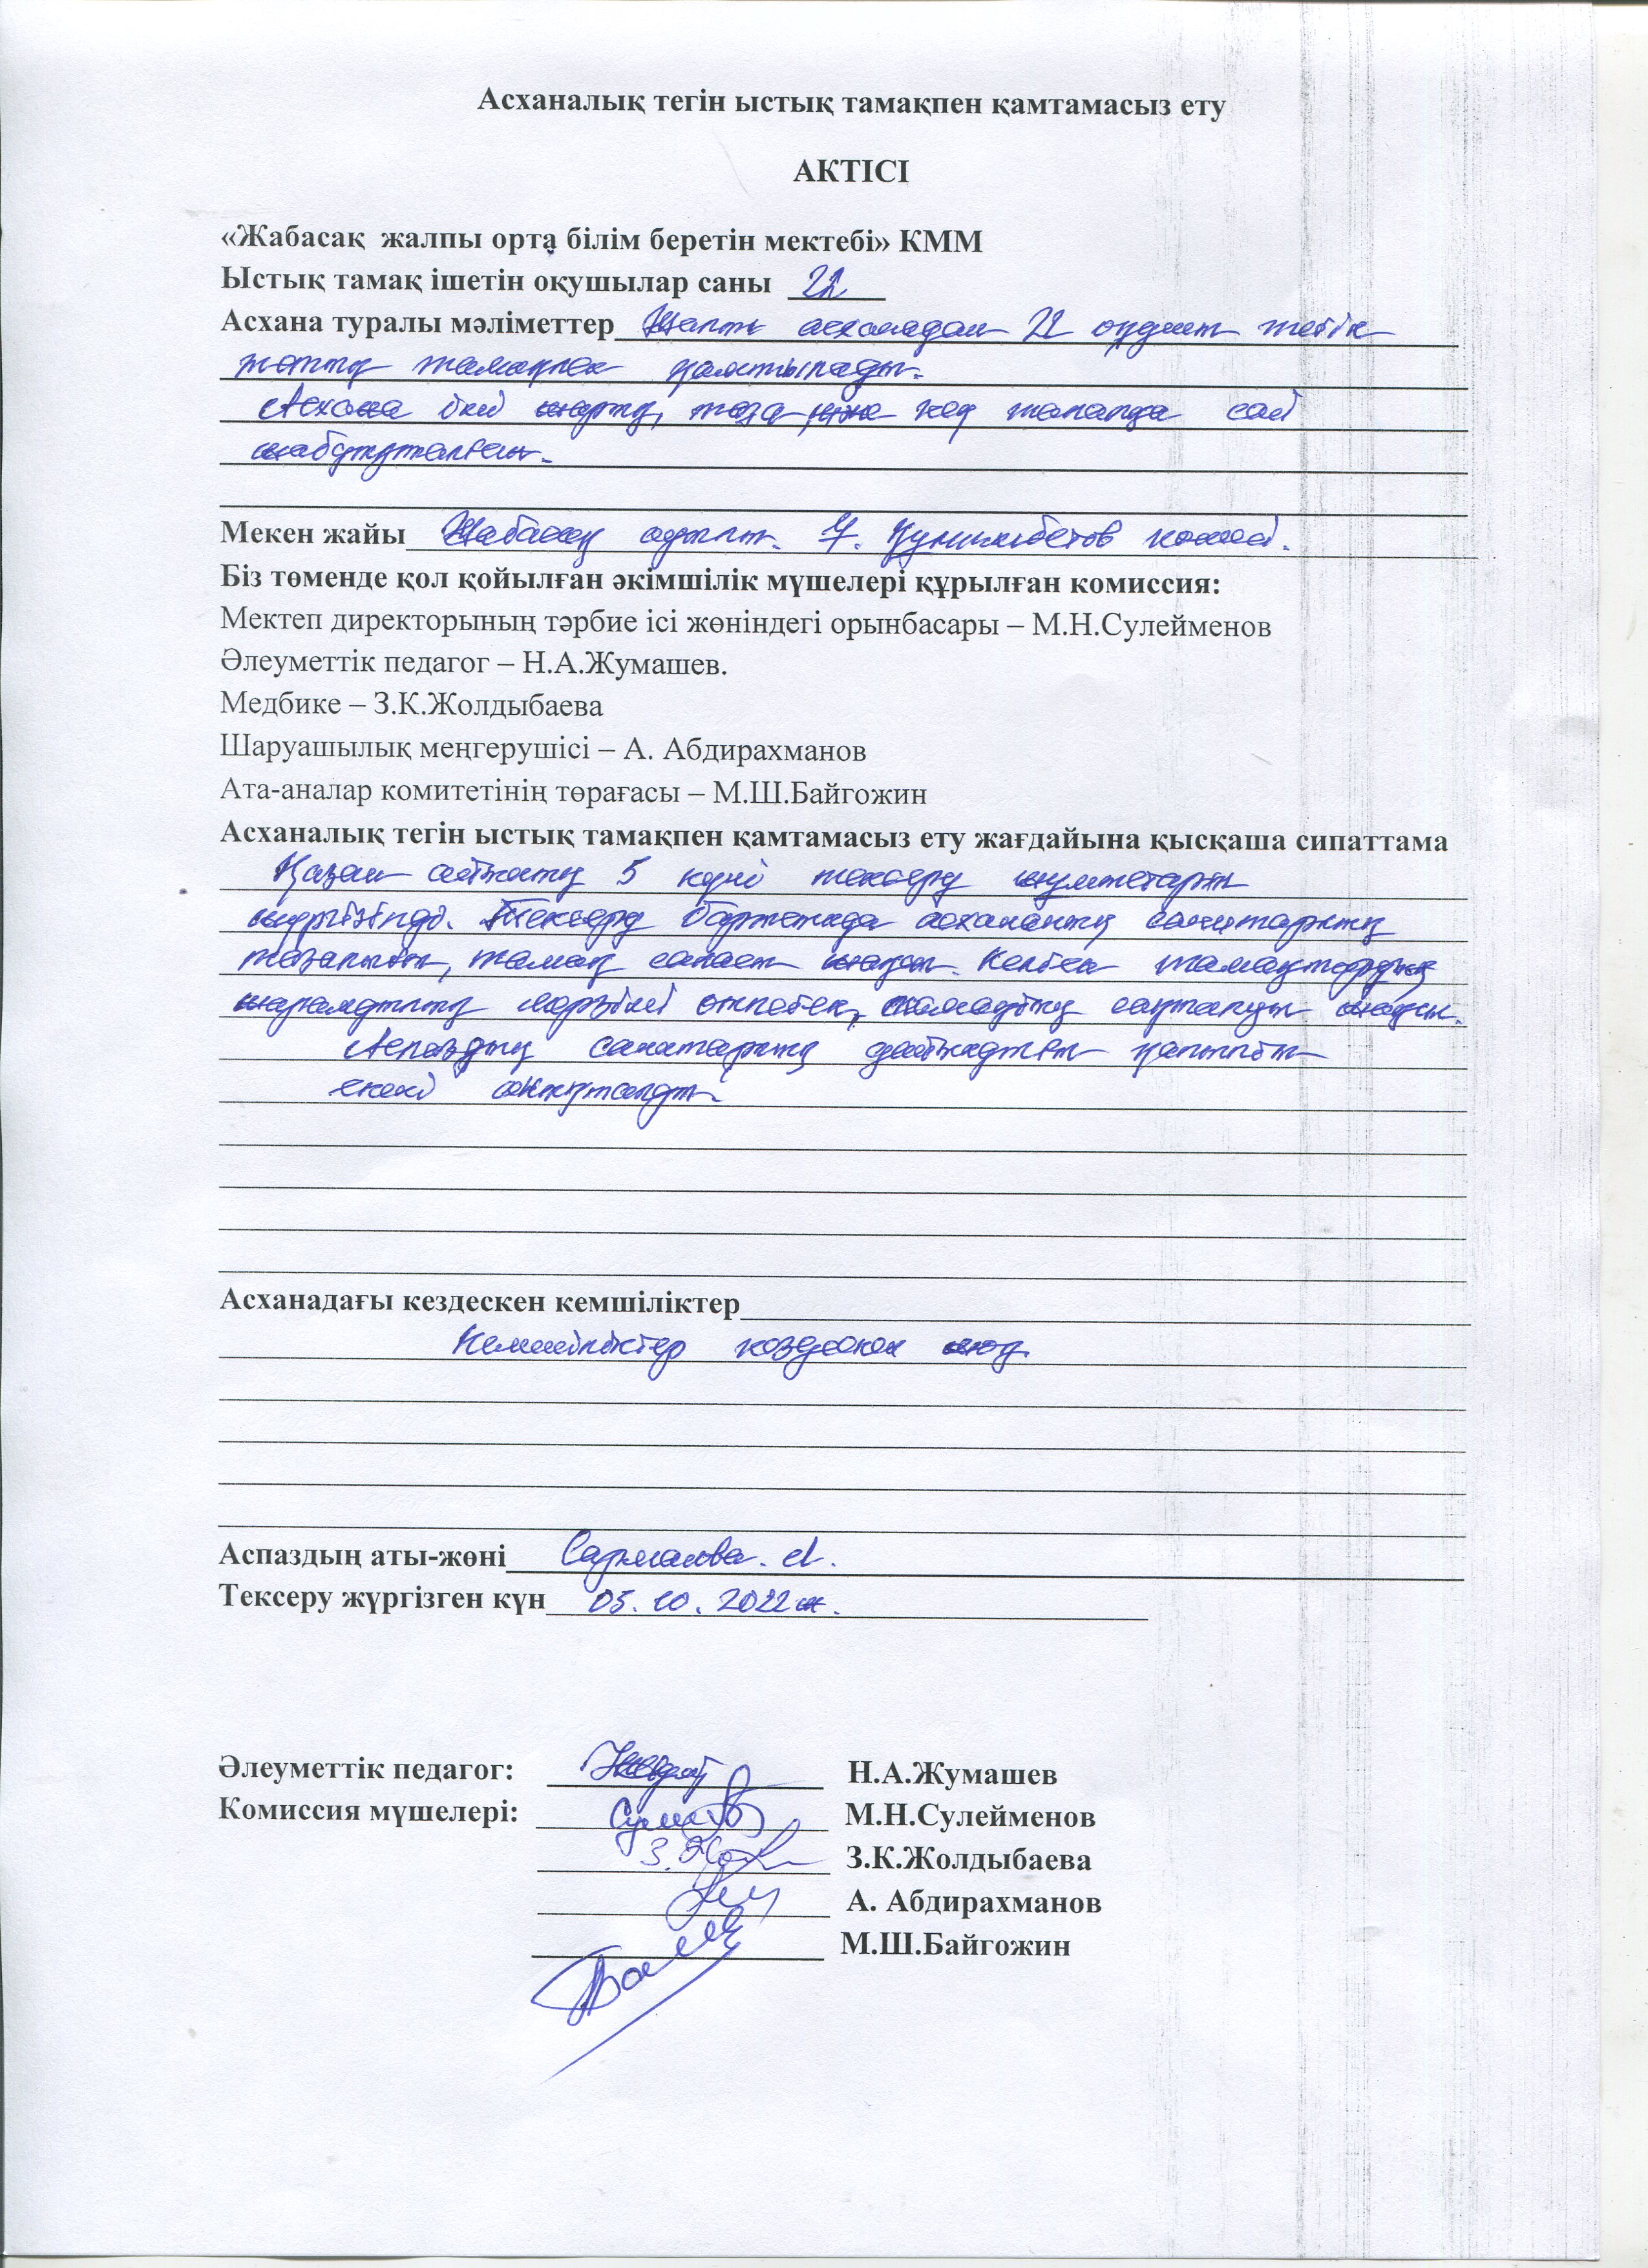 Асханалық тегін ыстық тамақпен қамтамасыз ету
АКТІСІ
«Жабасақ жалпы орта білім беретін мектебі» КММ
Ыстық тамақ ішетін оқушылар саны 22
Асхана туралы мәліметтер Жалпы асханадан 22 оқушы тегін
ыстық тамақпен қамтылады.
Асхана іші жарық, таза, кең талапқа сай
жабдықталған.
Мекен жайы Жабасақ ауылы. Құлымбетов көшесі.
Біз төменде қол қойылған әкімшілік мүшелері құрылған комиссия:
Мектеп директорының тәрбие ісі жөніндегі орынбасары – М.Н.Сулейменов
Әлеуметтік педагог – Н.А.Жумашев.
Медбике – З.К.Жолдыбаева
Шаруашылық меңгерушісі – А. Абдирахманов
Ата-аналар комитетінің төрағасы – М.Ш.Байгожин
Асханалық тегін ыстық тамақпен қамтамасыз ету жағдайына қысқаша сипаттама
Қазан айының 5 күні тексеру жұмыстары
жүргізілді. Тексеру барысында асхананың санитарлық
тазалығы, тамақ сапасы жақсы. Келген тамақтардың
жарамдылық мерзімі өтпеген, сақталуы жақсы.
Аспаздың санитарлық қалыпты
екені анықталды.
Асханадағы кездескен кемшіліктер
Кемшіліктер кездескен жоқ.
Аспаздың аты-жөні Сарманова. А.
Тексеру жүргізген күн 05.10.2022ж.
Әлеуметтік педагог: Н.А.Жумашев
Комиссия мүшелері: М.Н.Сулейменов
З.К.Жолдыбаева
А. Абдирахманов
М.Ш.Байгожин